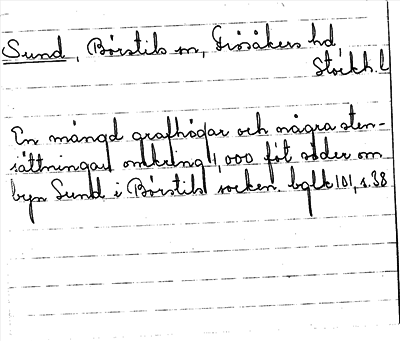 Sund, Börstils sn, Frösåkers hd,
Stockh. l
En mängd grafhögar och några sten-
sättningar omkring 1,000 föt söder om
byn Sund i Börstils socken. bglb 101, s. 38